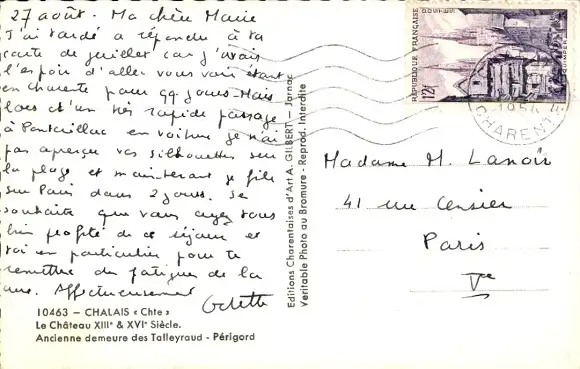 27 août. Ma chère Marie
J'ai tardé a répondre à ta
carte de juillet car j'avais
l'espoir d'aller vous voir étant
en charente pour qq jours. Mais
lors d'un très rapide passage
à Pontaillac en voiture je n'ai
pas aperçu vos silhouettes sur
la plage et maintenant je file
sur Paris dans 2 jours. Je
souhaite que vous ayez tous
bien profité de ce séjour et
toi en particulier pour te
remettre des fatigues de la
Affectueusement
Odette
10463 — CHALAIS « Chte »
Le Château XIIIe & XVIe Siècle.
Ancienne demeure des Talleyraud - Périgord
Editions Charentaises d'Art A. GILBERT — Jarnac
Véritable Photo au Bromure - Reprod. Interdite
REPUBLIQUE FRANÇAISE
POSTES
12F
QUIMPER
CHARENTE
Madame M. Lanoir
41 rue Censier
Paris
Ve